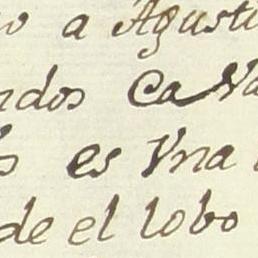 o a Agusti
ndos Cava
s es Vna
de el lobo